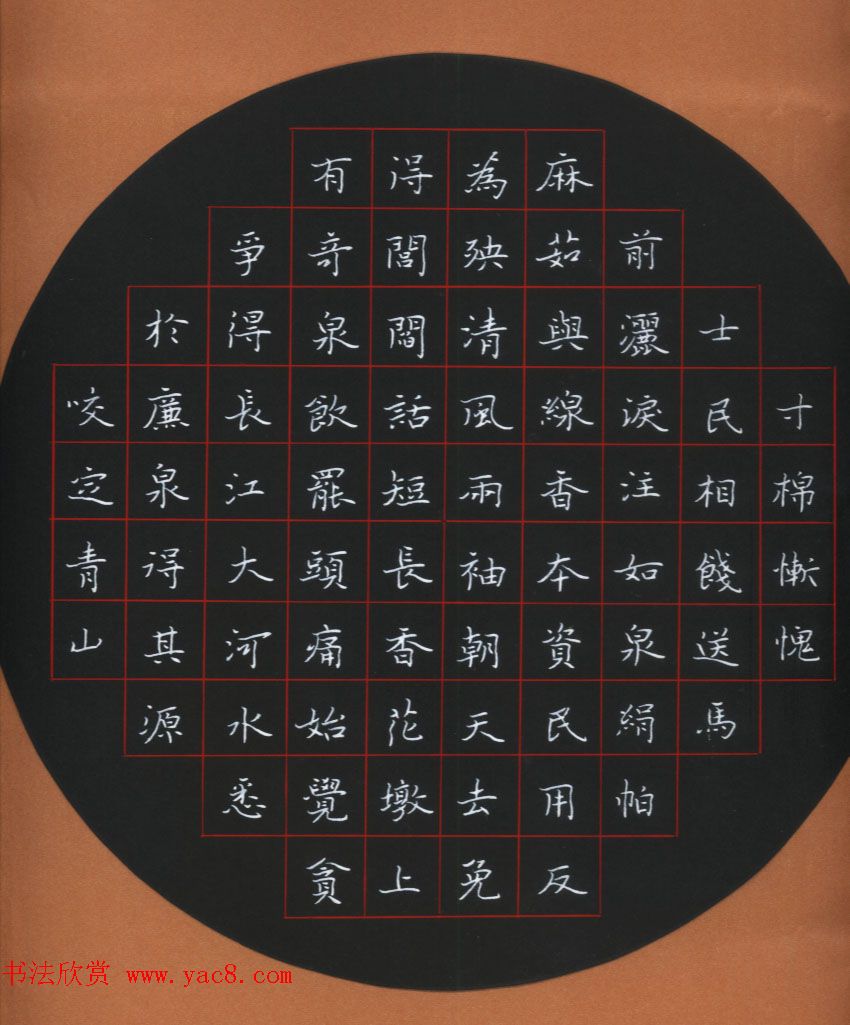 寸棉慚愧
士民相餞送馬
前灑淚注如泉絹帕
麻茹與線香本資民用反
為殃清風兩袖朝天去免
得閭閻話短長香花墩上
有奇泉飲罷頭痛始覺貪
爭得長江大河水悉
於廉泉得其源
咬定青山
书法欣赏 www.yac8.com